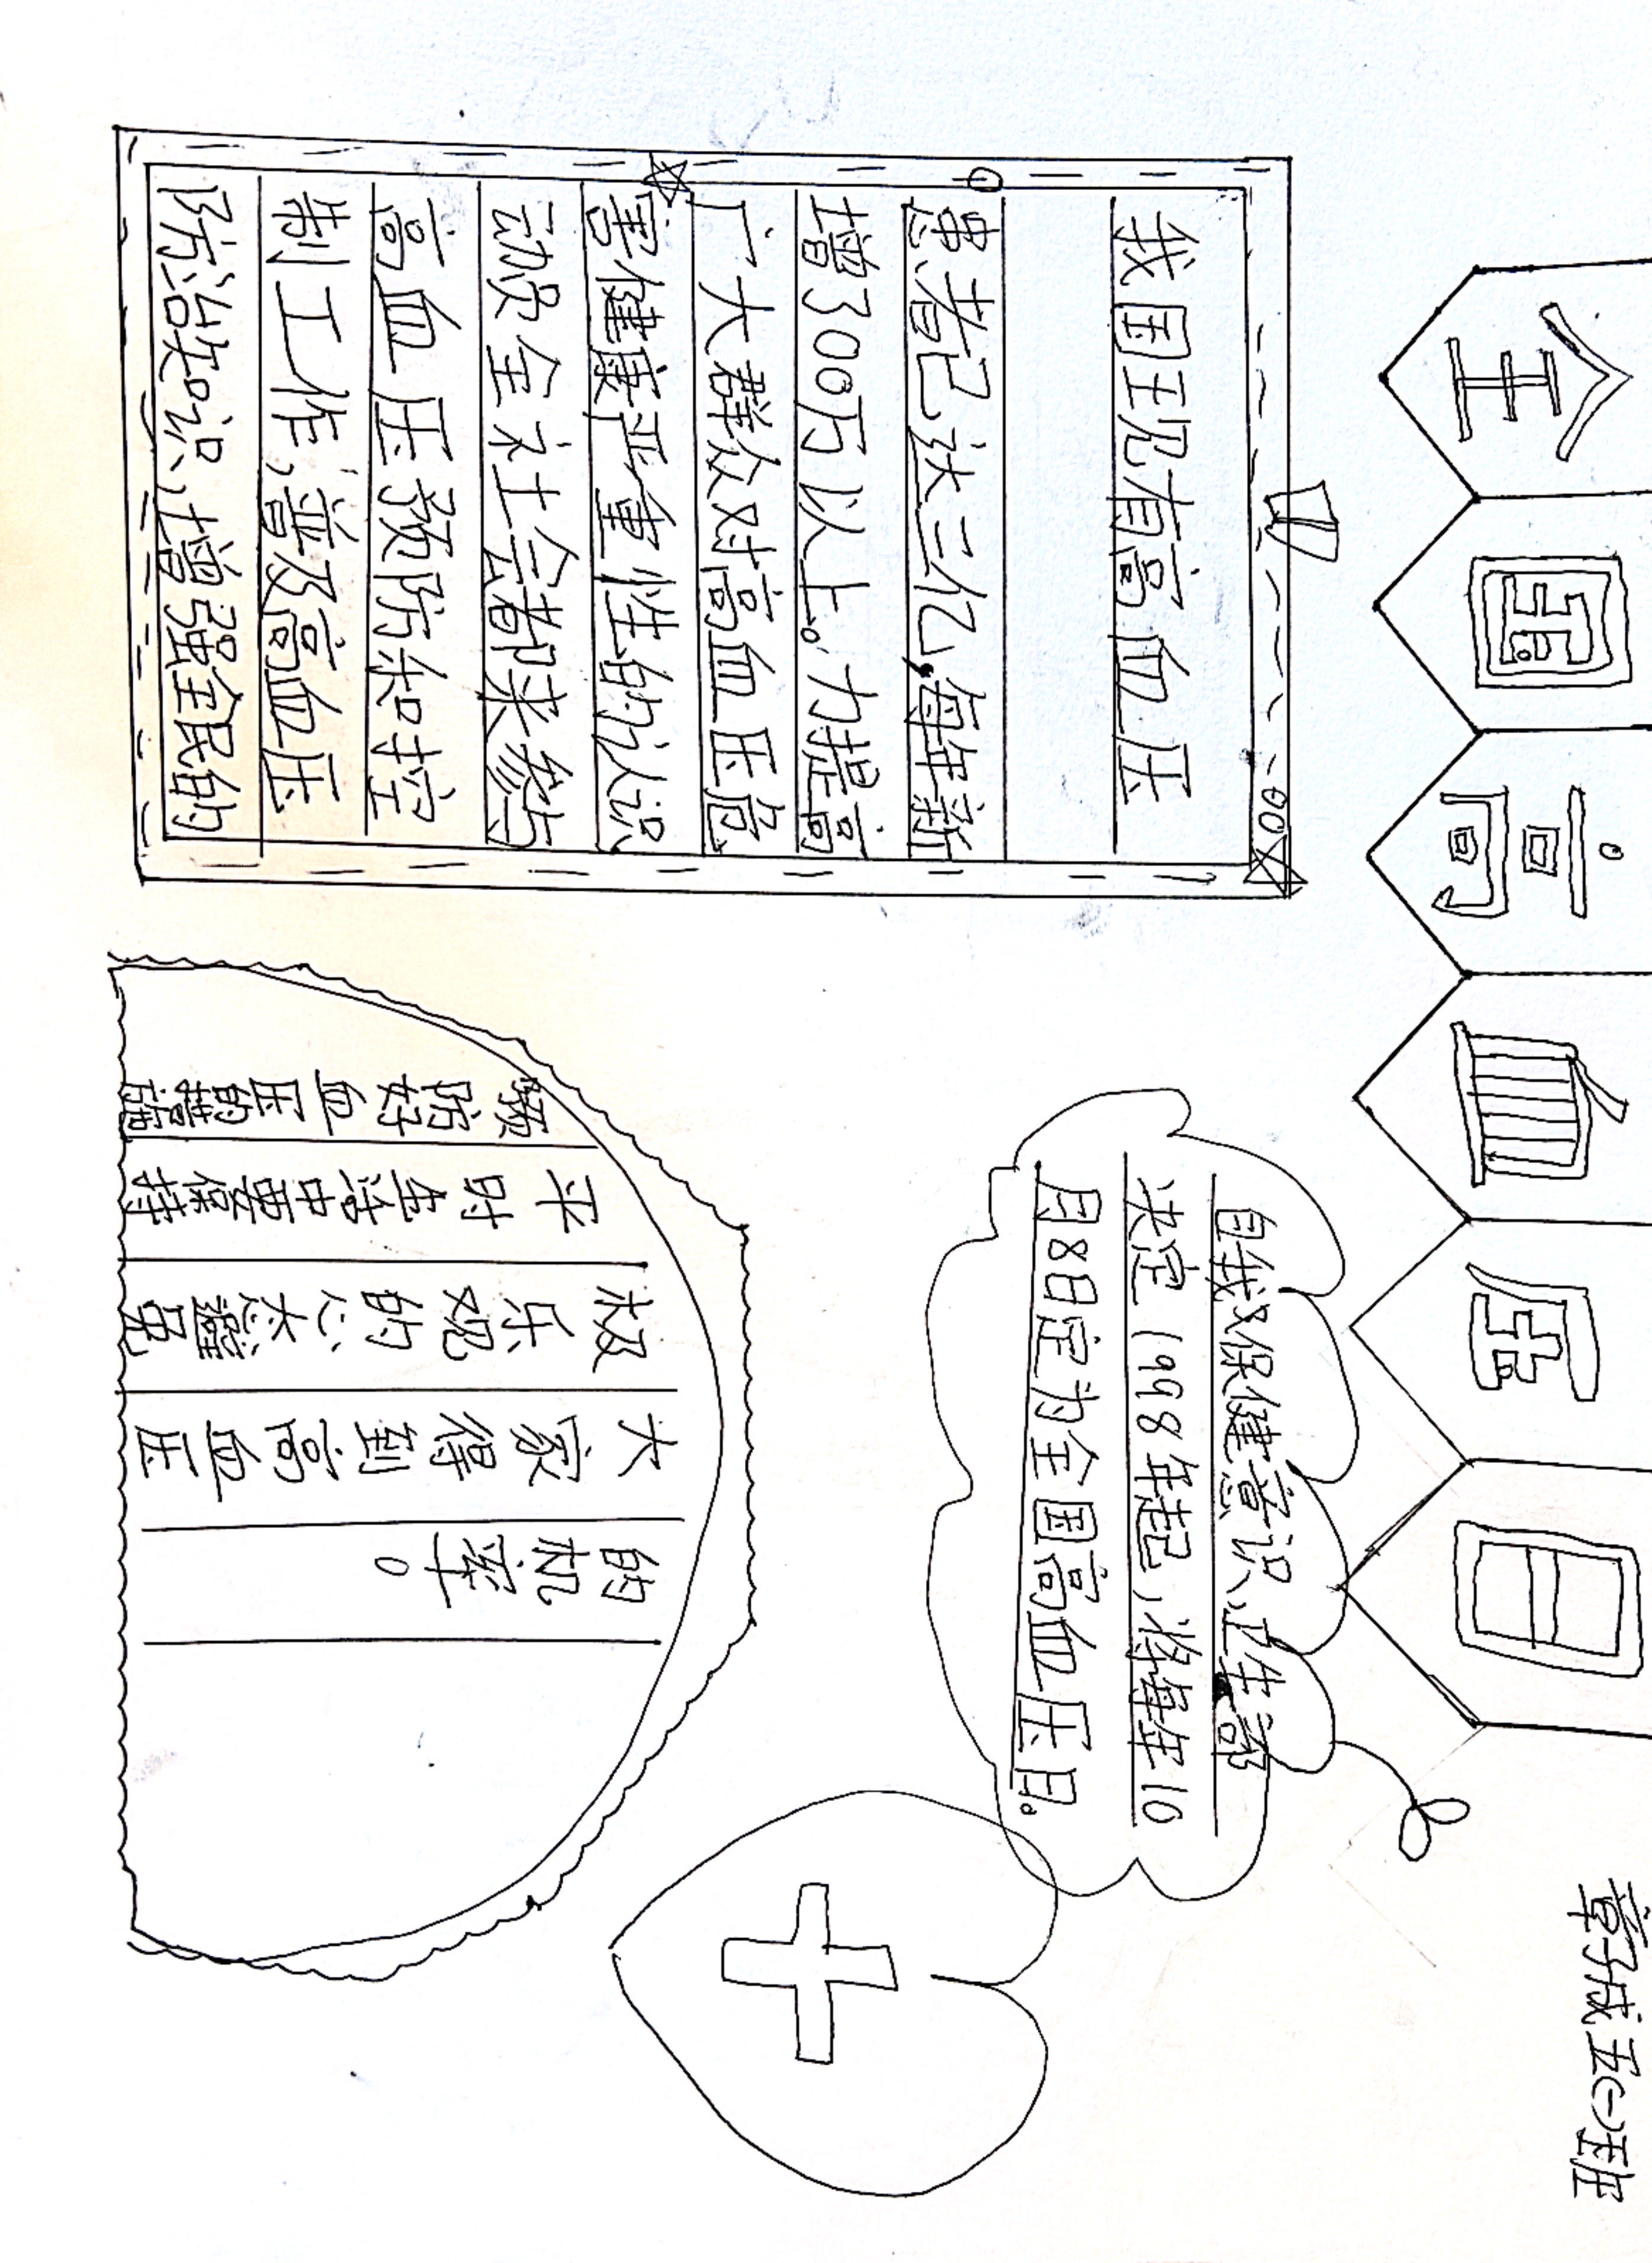 全国高血压日
章子成 五(一)班
我国现有高血压
患者已达三亿,每年新
增300万以上。力提高
广大群众对高血压危
害健康严重性的认识
动员全社会都来参与
高血压预防和控
制工作,普及高血压
防治知识,增强全民的
自我保健意识,卫生部
决定1998年起,将每年10
月8日定为全国高血压日。
预防好血压的
平时生活中要保持
极乐观的心态避免
大家得到高血压
的机率。